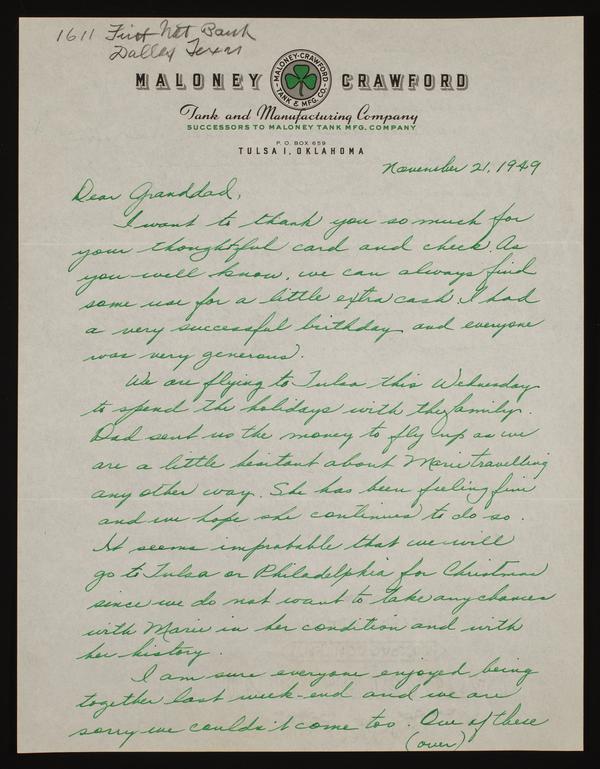 1611 First Nat Bank
Dallas Texas
MALONEY CRAWFORD
MALONEY-CRAWFORD
TANK & MFG. CO.
Tank and Manufacturing Company
SUCCESSORS TO MALONEY TANK MFG. COMPANY
P. O. BOX 659
TULSA 1, OKLAHOMA
November 21, 1949
Dear Granddad,
I want to thank you so much for
your thoughtful card and check. As
you well know, we can always find
some use for a little extra cash. I had
a very successful birthday and everyone
was very generous.
We are flying to Tulsa this Wednesday
to spend the holidays with the family.
Dad sent us the money to fly up as we
are a little hesitant about Marie travelling
any other way. She has been feeling fine
and we hope she continues to do so.
It seems improbable that we will
go to Tulsa or Philadelphia for Christmas
since we do not want to take any chances
with Marie in her condition and with
her history.
I am sure everyone enjoyed being
together last week-end and we are
sorry we couldn't come too. One of these
(over)